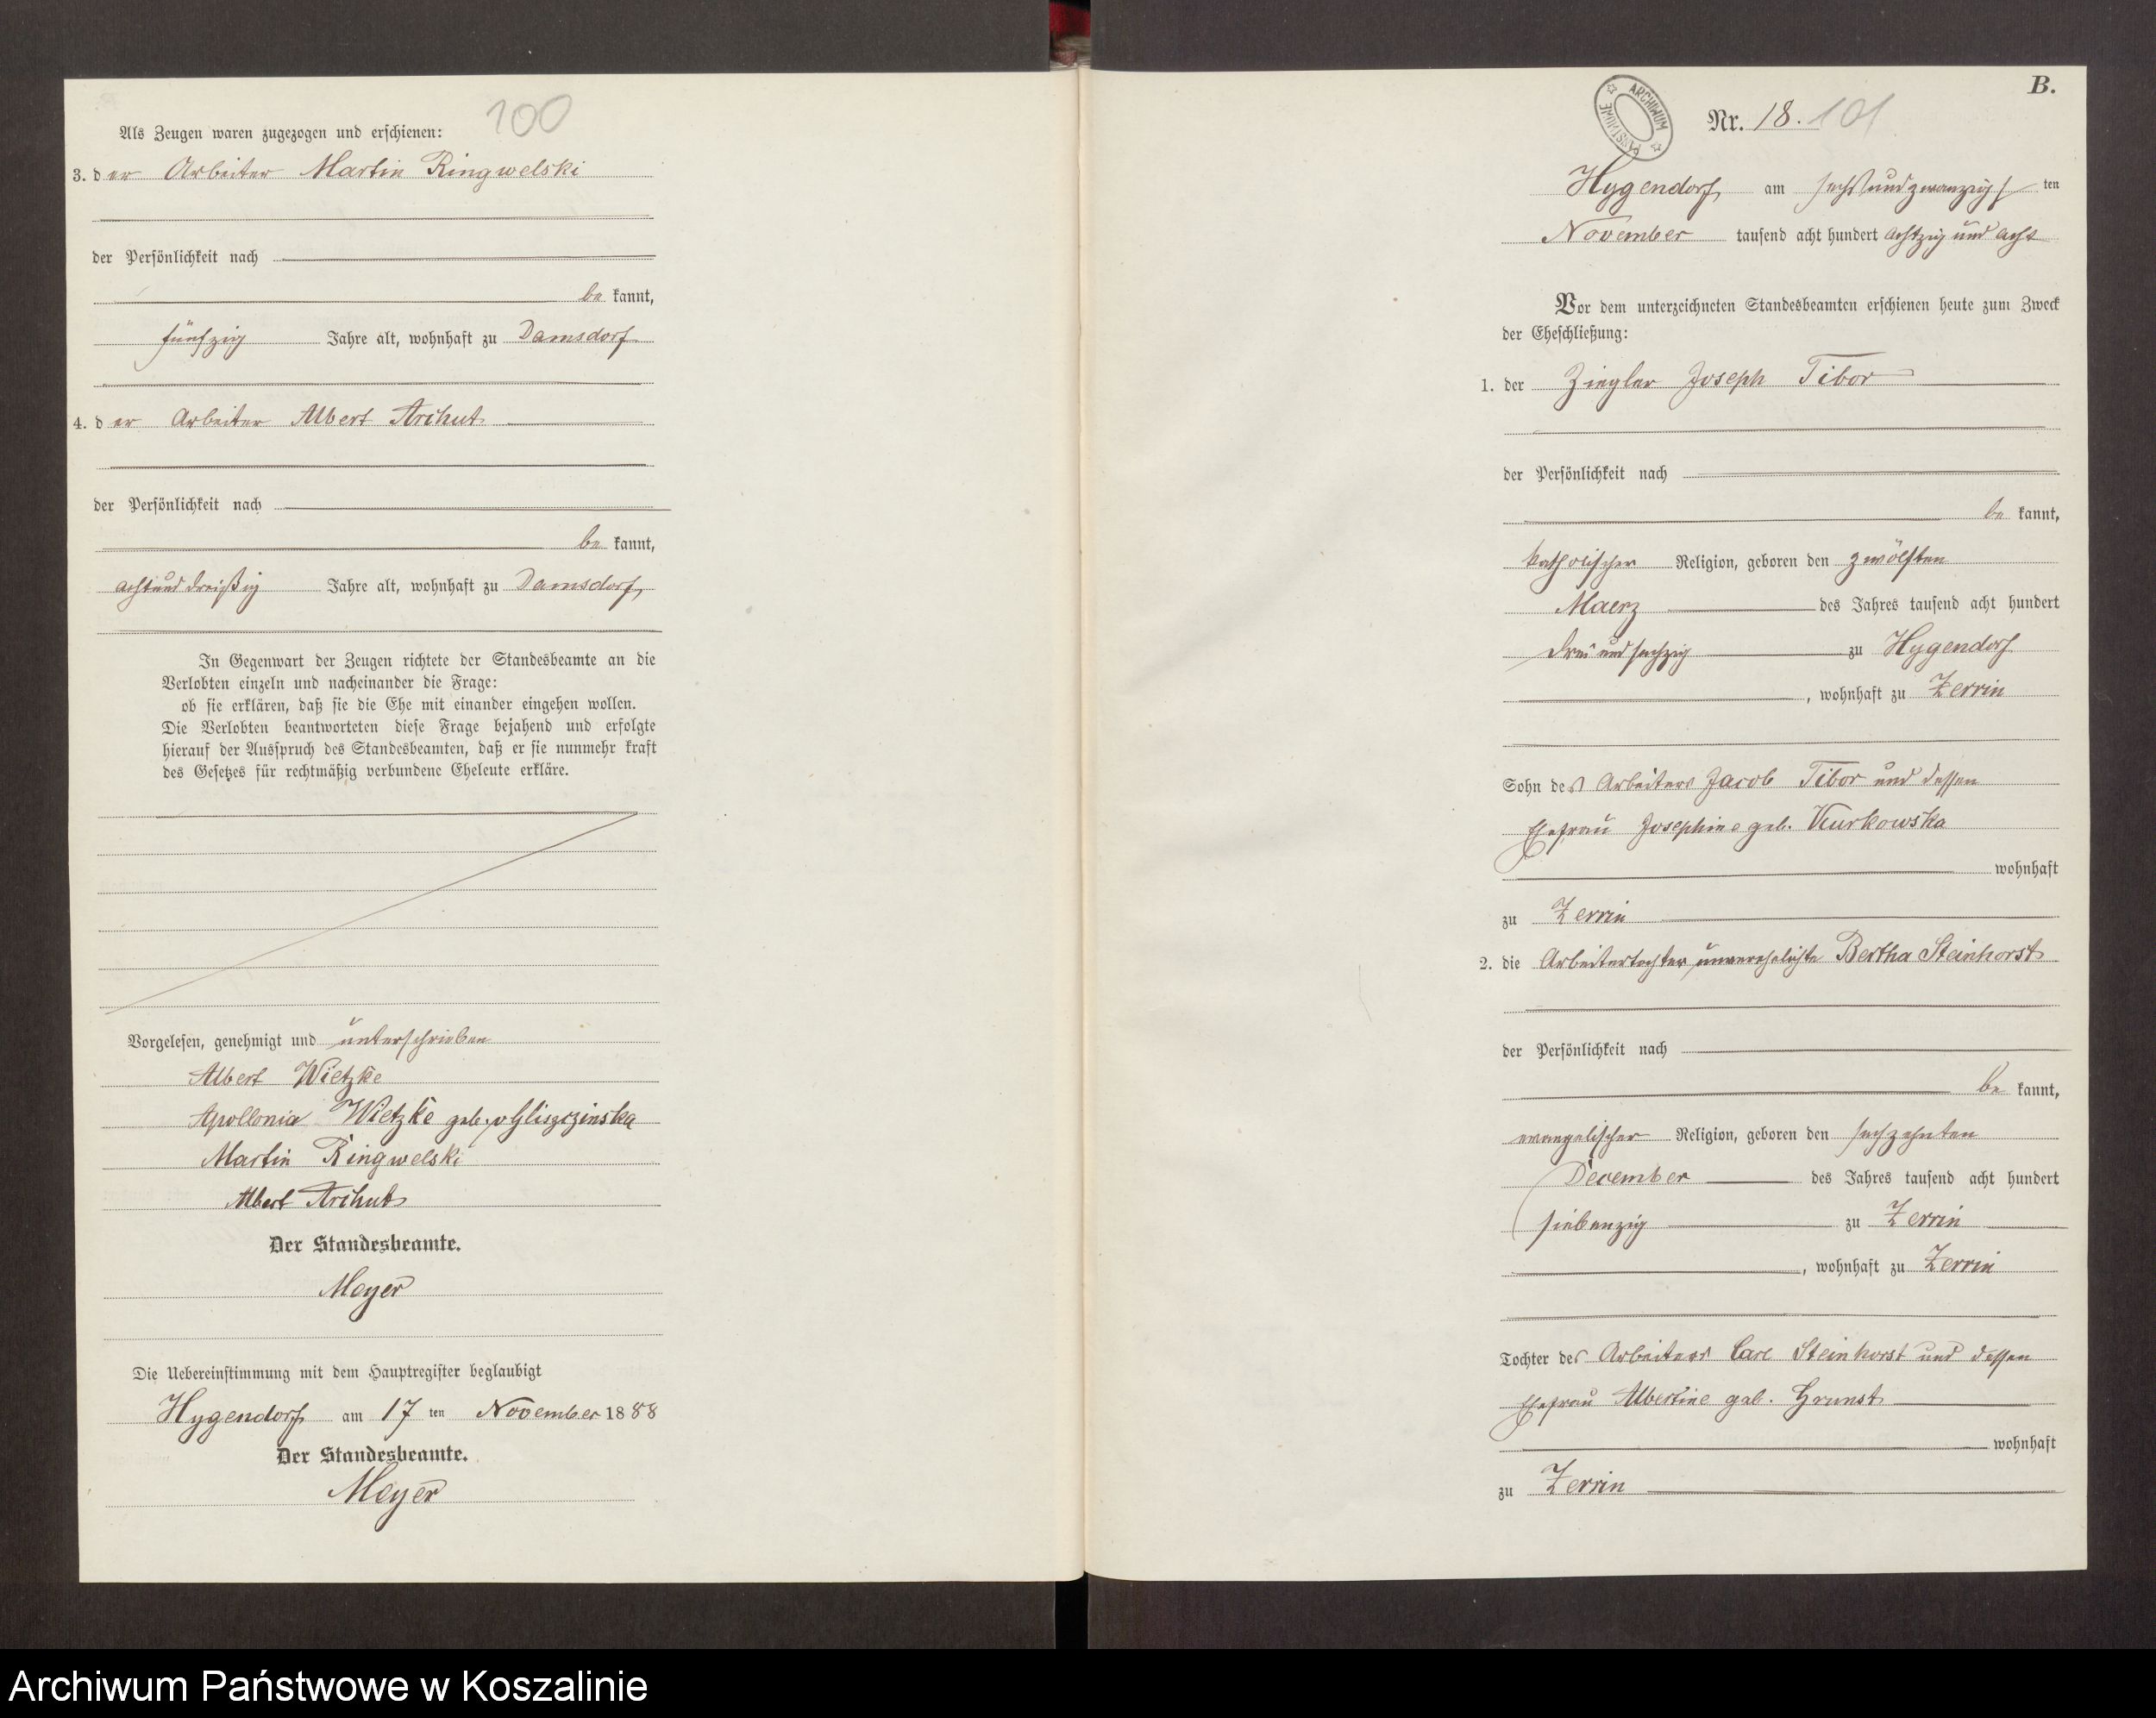 100
Als Zeugen waren zugezogen und erschienen:
3. der Arbeiter Martin Ringwelski
der Persönlichkeit nach
be kannt,
fünfzig Jahre alt, wohnhaft zu Damsdorf
4. der Arbeiter Albert Archut
der Persönlichkeit nach
be kannt,
achtund dreißig Jahre alt, wohnhaft zu Damsdorf,
In Gegenwart der Zeugen richtete der Standesbeamte an die
Verlobten einzeln und nacheinander die Frage:
ob sie erklären, daß sie die Ehe mit einander eingehen wollen.
Die Verlobten beantworteten diese Frage bejahend und erfolgte
hierauf der Ausspruch des Standesbeamten, daß er sie nunmehr kraft
des Gesetzes für rechtmäßig verbundene Eheleute erkläre.
Vorgelesen, genehmigt und unterschrieben
Albert Wietzke
Apollonia Wietzke geb. v Gliszczinska
Martin Ringwelski
Albert Archut
Der Standesbeamte.
Meyer
Die Uebereinstimmung mit dem Hauptregister beglaubigt
Hygendorf am 17 ten November 1888
Der Standesbeamte.
Meyer
B.
ARCHIWUM PAŃSTWOWE
Nr. 18. 101
Hygendorf, am sechsundzwanzigs ten
November tausend acht hundert achtzig und acht
Vor dem unterzeichneten Standesbeamten erschienen heute zum Zweck
der Eheschließung:
1. der Ziegler Joseph Tibor
der Persönlichkeit nach
be kannt,
katholischer Religion, geboren den zwölften
Maerz des Jahres tausend acht hundert
drei und sechzig zu Hygendorf
, wohnhaft zu Zerrin
Sohn des Arbeiters Jacob Tibor und dessen
Ehefrau Josephine geb. Kurkowska
wohnhaft
zu Zerrin
2. die Arbeitertochter, unverehelichte Bertha Steinhorst
der Persönlichkeit nach
be kannt,
evangelischer Religion, geboren den sechzehnten
December des Jahres tausend acht hundert
siebenzig zu Zerrin
, wohnhaft zu Zerrin
Tochter des Arbeiters Carl Steinhorst und dessen
Ehefrau Albertine geb. Grunst
wohnhaft
zu Zerrin
Archiwum Państwowe w Koszalinie